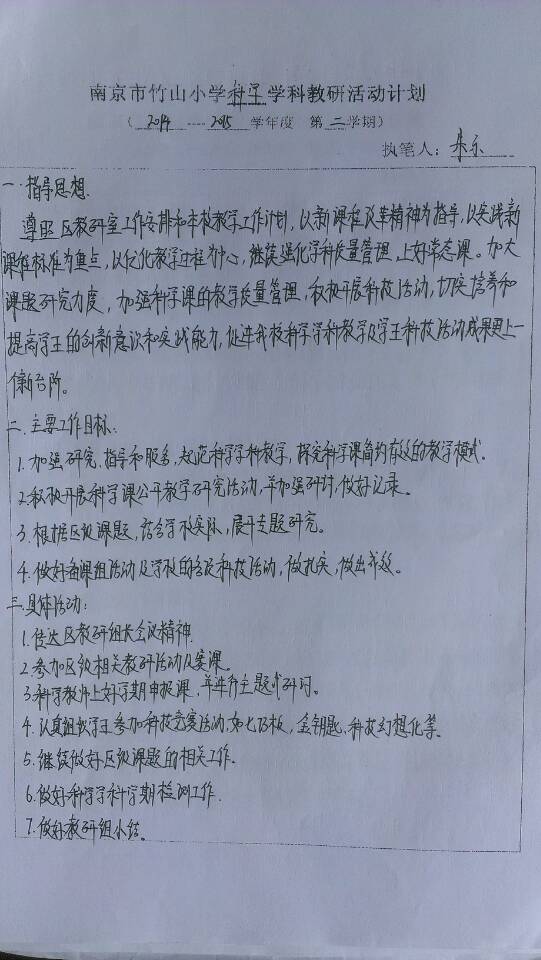 南京市竹山小学科学学科教研活动计划
（2014----2015学年度 第二学期）
执笔人：朱乐
一.指导思想.
遵照区教研室工作安排和本校教学工作计划，以新课程改革精神为指导，以实践新
课程标准为重点，以优化教学过程为中心，继续强化学科质量管理，上好常态课。加大
课题研究力度，加强科学课的教学质量管理，积极开展科技活动，切实培养和
提高学生的创新意识和实践能力，促进我校科学学科教学及学生科技活动成果更上一
个新台阶。
二.主要工作目标：
1.加强研究、指导和服务，规范科学学科教学，探究科学课简约有效的教学模式。
2.积极开展科学课公开教学研究活动，并加强研讨，做好记录。
3.根据区级课题，结合学校实际，展开专题研究。
4.做好备课组活动及学校的各层科技活动，做扎实，做出成效。
三.具体活动：
1.传达区教研组长会议精神.
2.参加区级相关教研活动及赛课。
3.科学教师上好学期申报课，并进行主题式研讨。
4.认真组织学生参加科技竞赛活动，如七巧板，金钥匙、科技幻想化等。
5.继续做好区级课题的相关工作.
6.做好科学学科学期检测工作.
7.做好教研组小结。